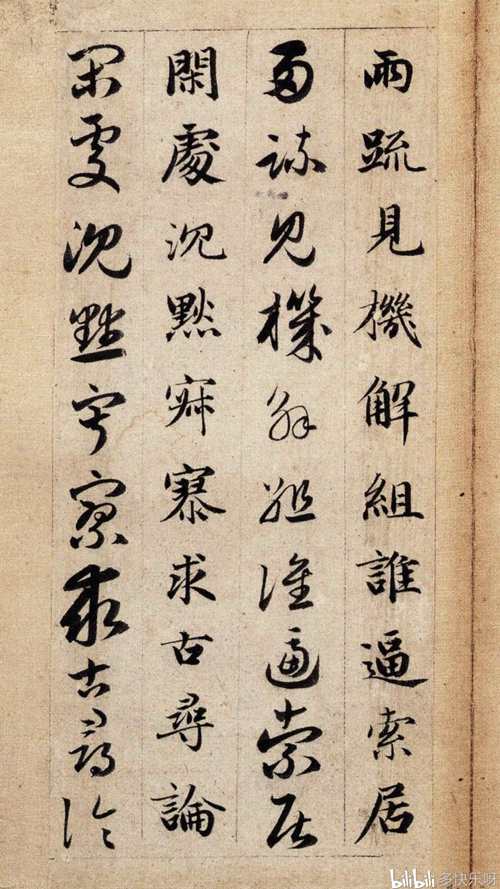 兩疏見機解組誰逼索居
兩疏見機解組誰逼索居
閑處沉默寂寥求古尋論
閑處沉默寂寥求古尋論
bilibili 多快乐呀